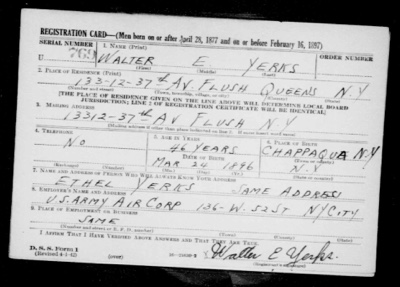 REGISTRATION CARD—(Men born on or after April 28, 1877 and on or before February 16, 1897)
SERIAL NUMBER 1. NAME (Print) ORDER NUMBER
U 769 WALTER E. YERKS
(First) (Middle) (Last)
2. PLACE OF RESIDENCE (Print)
133-12-37th AV. FLUSH QUEENS N.Y
(Number and street) (Town, township, village, or city) (County) (State)
[THE PLACE OF RESIDENCE GIVEN ON THE LINE ABOVE WILL DETERMINE LOCAL BOARD
JURISDICTION; LINE 2 OF REGISTRATION CERTIFICATE WILL BE IDENTICAL]
3. MAILING ADDRESS
13312-37th AV FLUSH N.Y
[Mailing address if other than place indicated on line 2. If same insert word same]
4. TELEPHONE 5. AGE IN YEARS 6. PLACE OF BIRTH
NO 46 YEARS CHAPPAQUE N.Y
DATE OF BIRTH (Town or county)
MAR 24 1896 N.Y
(Exchange) (Number) (Mo.) (Day) (Yr.) (State or country)
7. NAME AND ADDRESS OF PERSON WHO WILL ALWAYS KNOW YOUR ADDRESS
ETHEL YERKS SAME ADDRESS
8. EMPLOYER'S NAME AND ADDRESS
U.S. ARMY AIR CORP 136-W-52 ST NY CITY
9. PLACE OF EMPLOYMENT OR BUSINESS
SAME
(Number and street or R. F. D. number) (Town) (County) (State)
I AFFIRM THAT I HAVE VERIFIED ABOVE ANSWERS AND THAT THEY ARE TRUE.
D. S. S. Form 1
(Revised 4-1-42) (over) Walter E Yerks